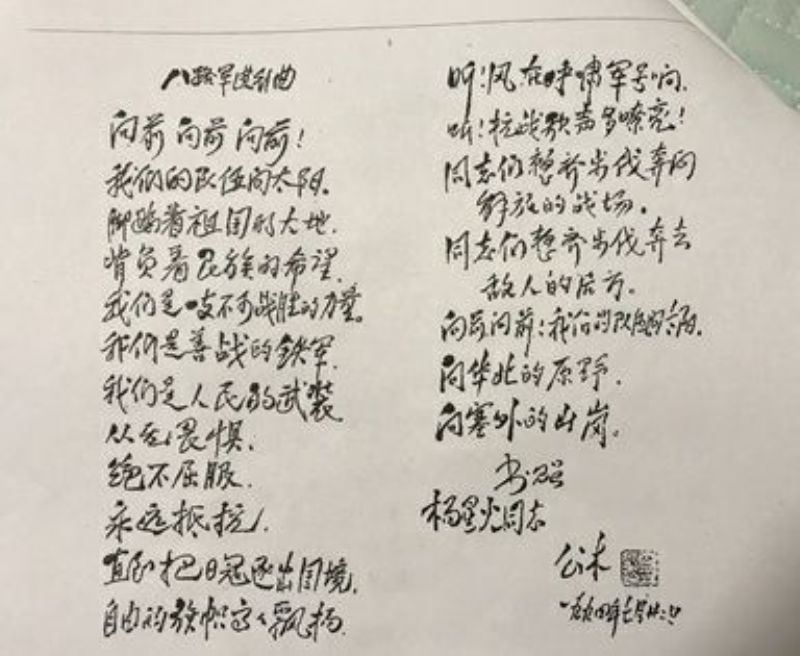 八路军进行曲
向前 向前 向前！
我们的队伍向太阳，
脚踏着祖国的大地，
背负着民族的希望，
我们是一支不可战胜的力量。
我们是善战的铁军，
我们是人民的武装，
从无畏惧，
绝不屈服，
永远抵抗，
直到把日寇逐出国境，
自由的旗帜高高飘扬。
听！风在呼啸军号响，
听！抗战歌声多嘹亮！
同志们整齐步伐奔向
解放的战场。
同志们整齐步伐奔去
敌人的后方。
向前向前！我们的队伍向太阳，
向华北的原野，
向塞外的山岗。
书录
杨星火同志
公木